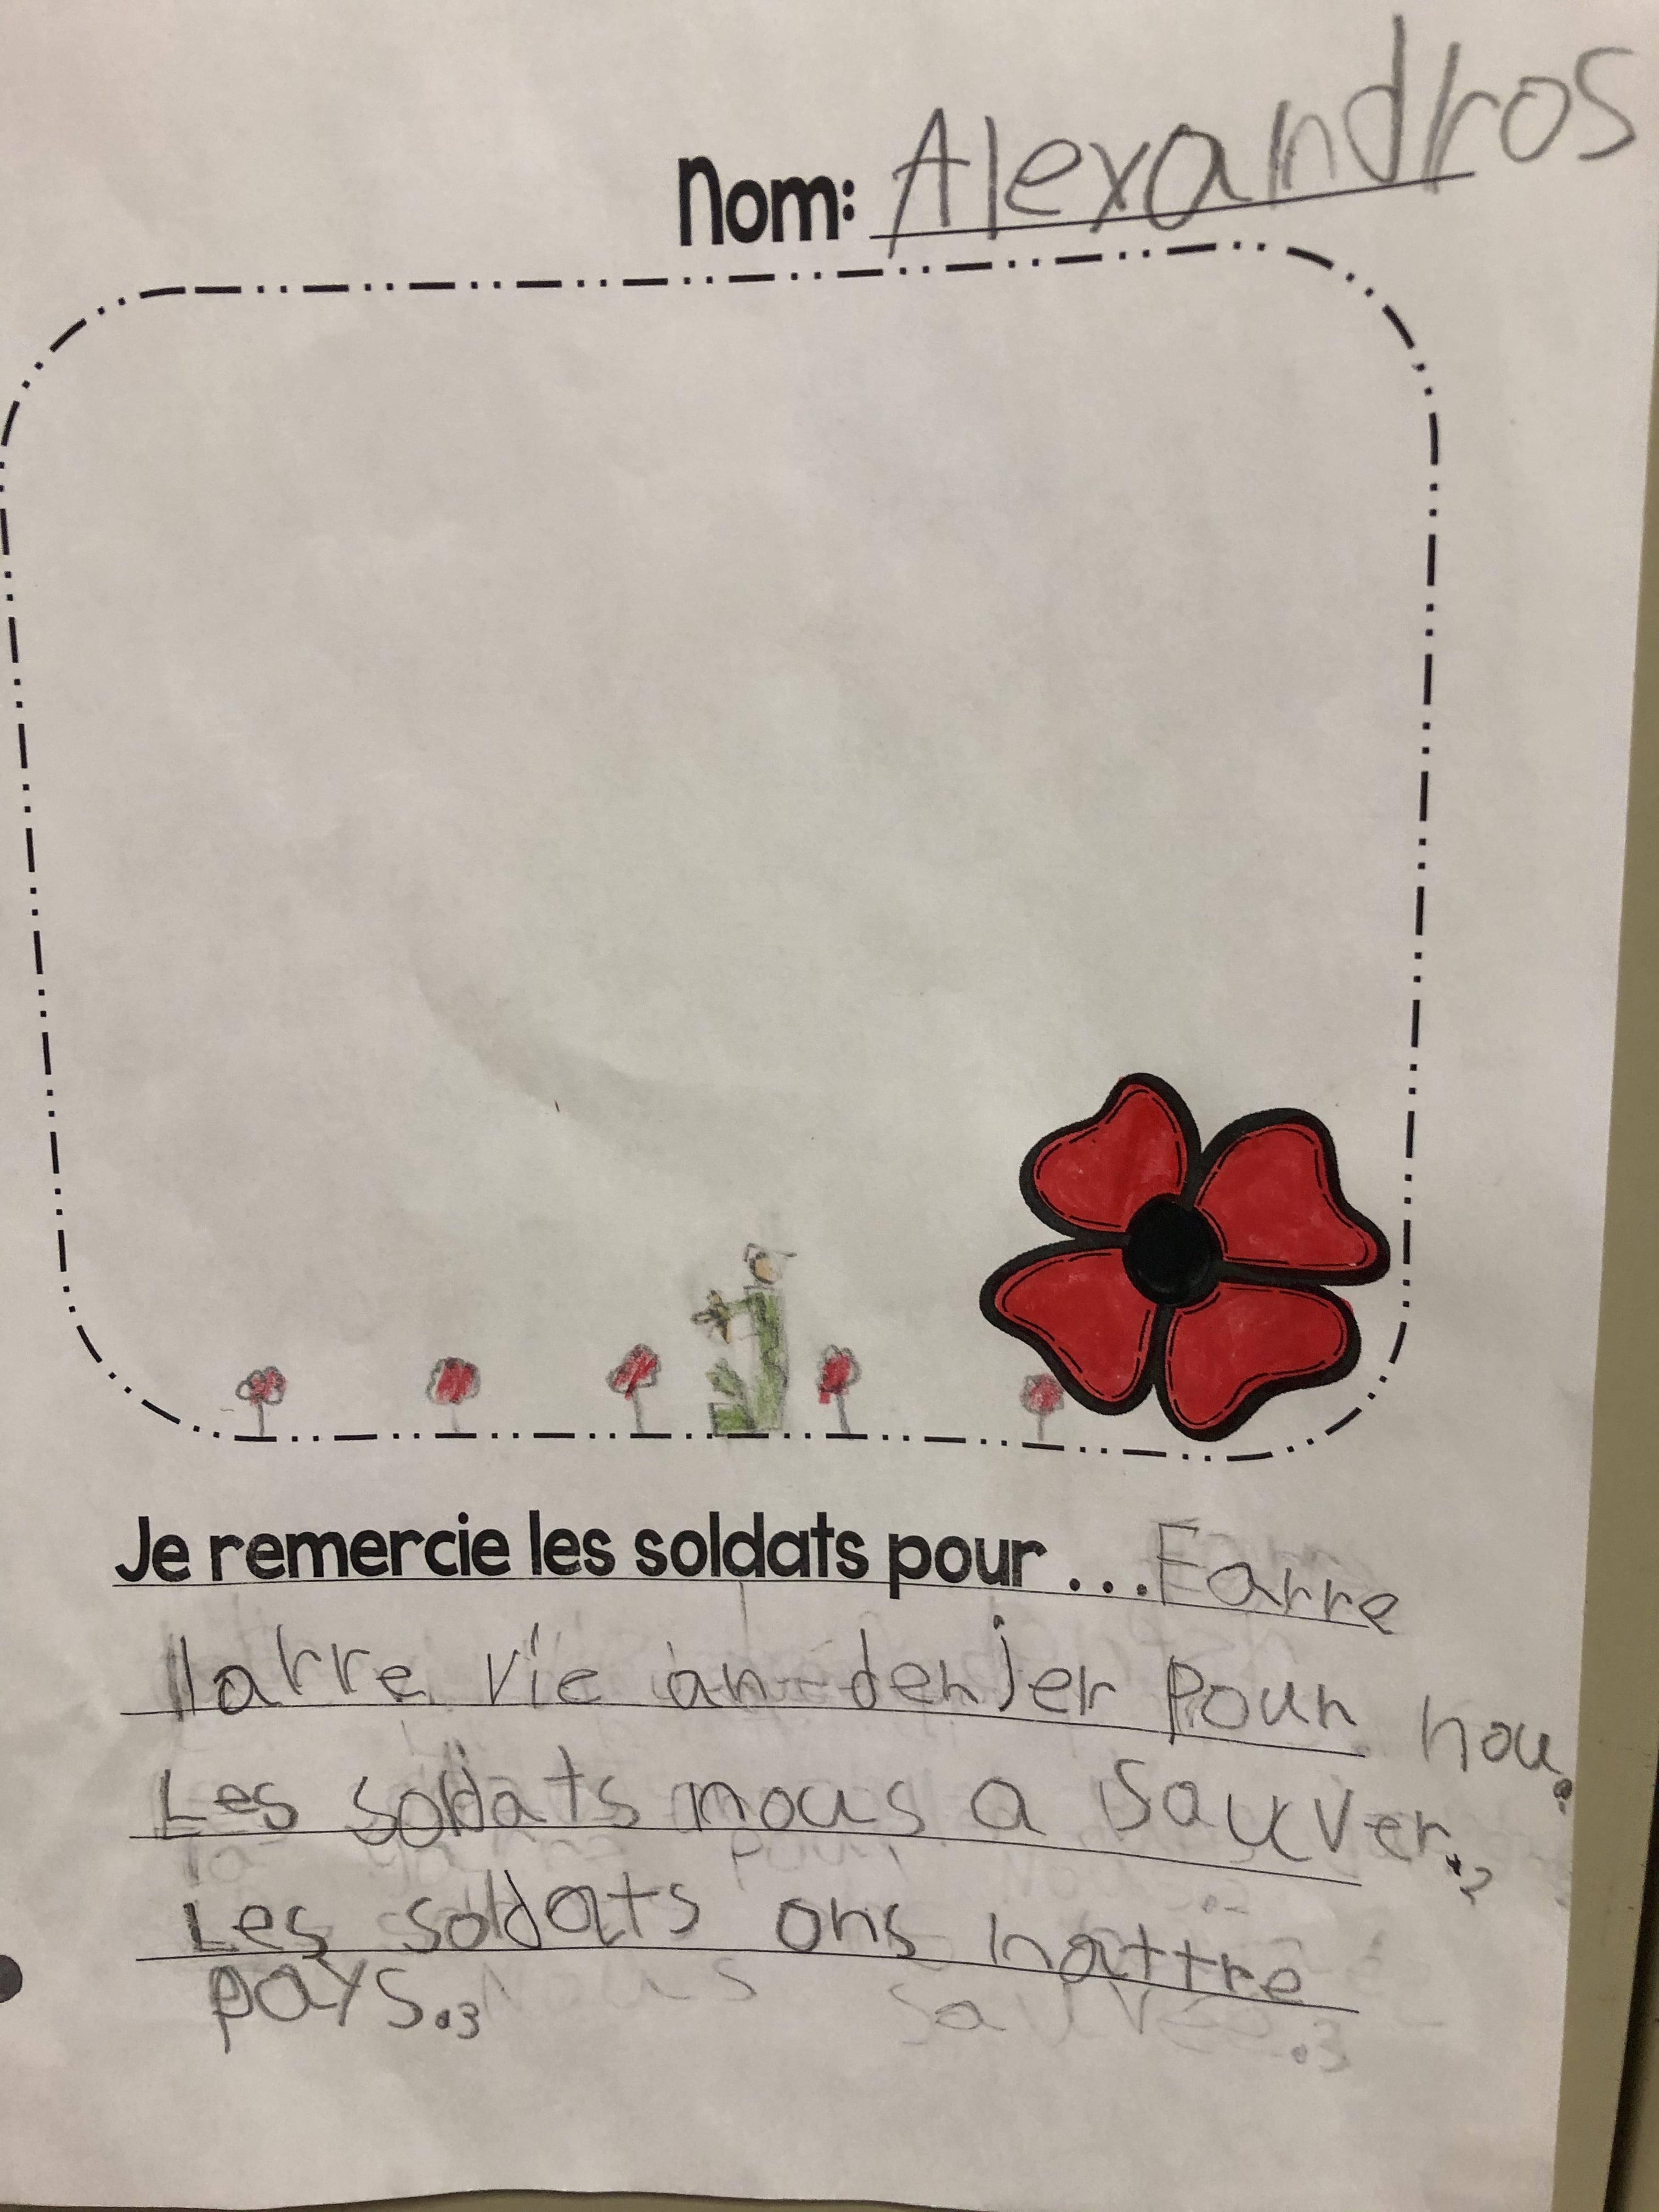 Nom: Alexandros
Je remercie les soldats pour ... Farre
larre vie an denjer pour nou.
Les soldats nous a sauver.2
Les soldats ons nattre
pays.3